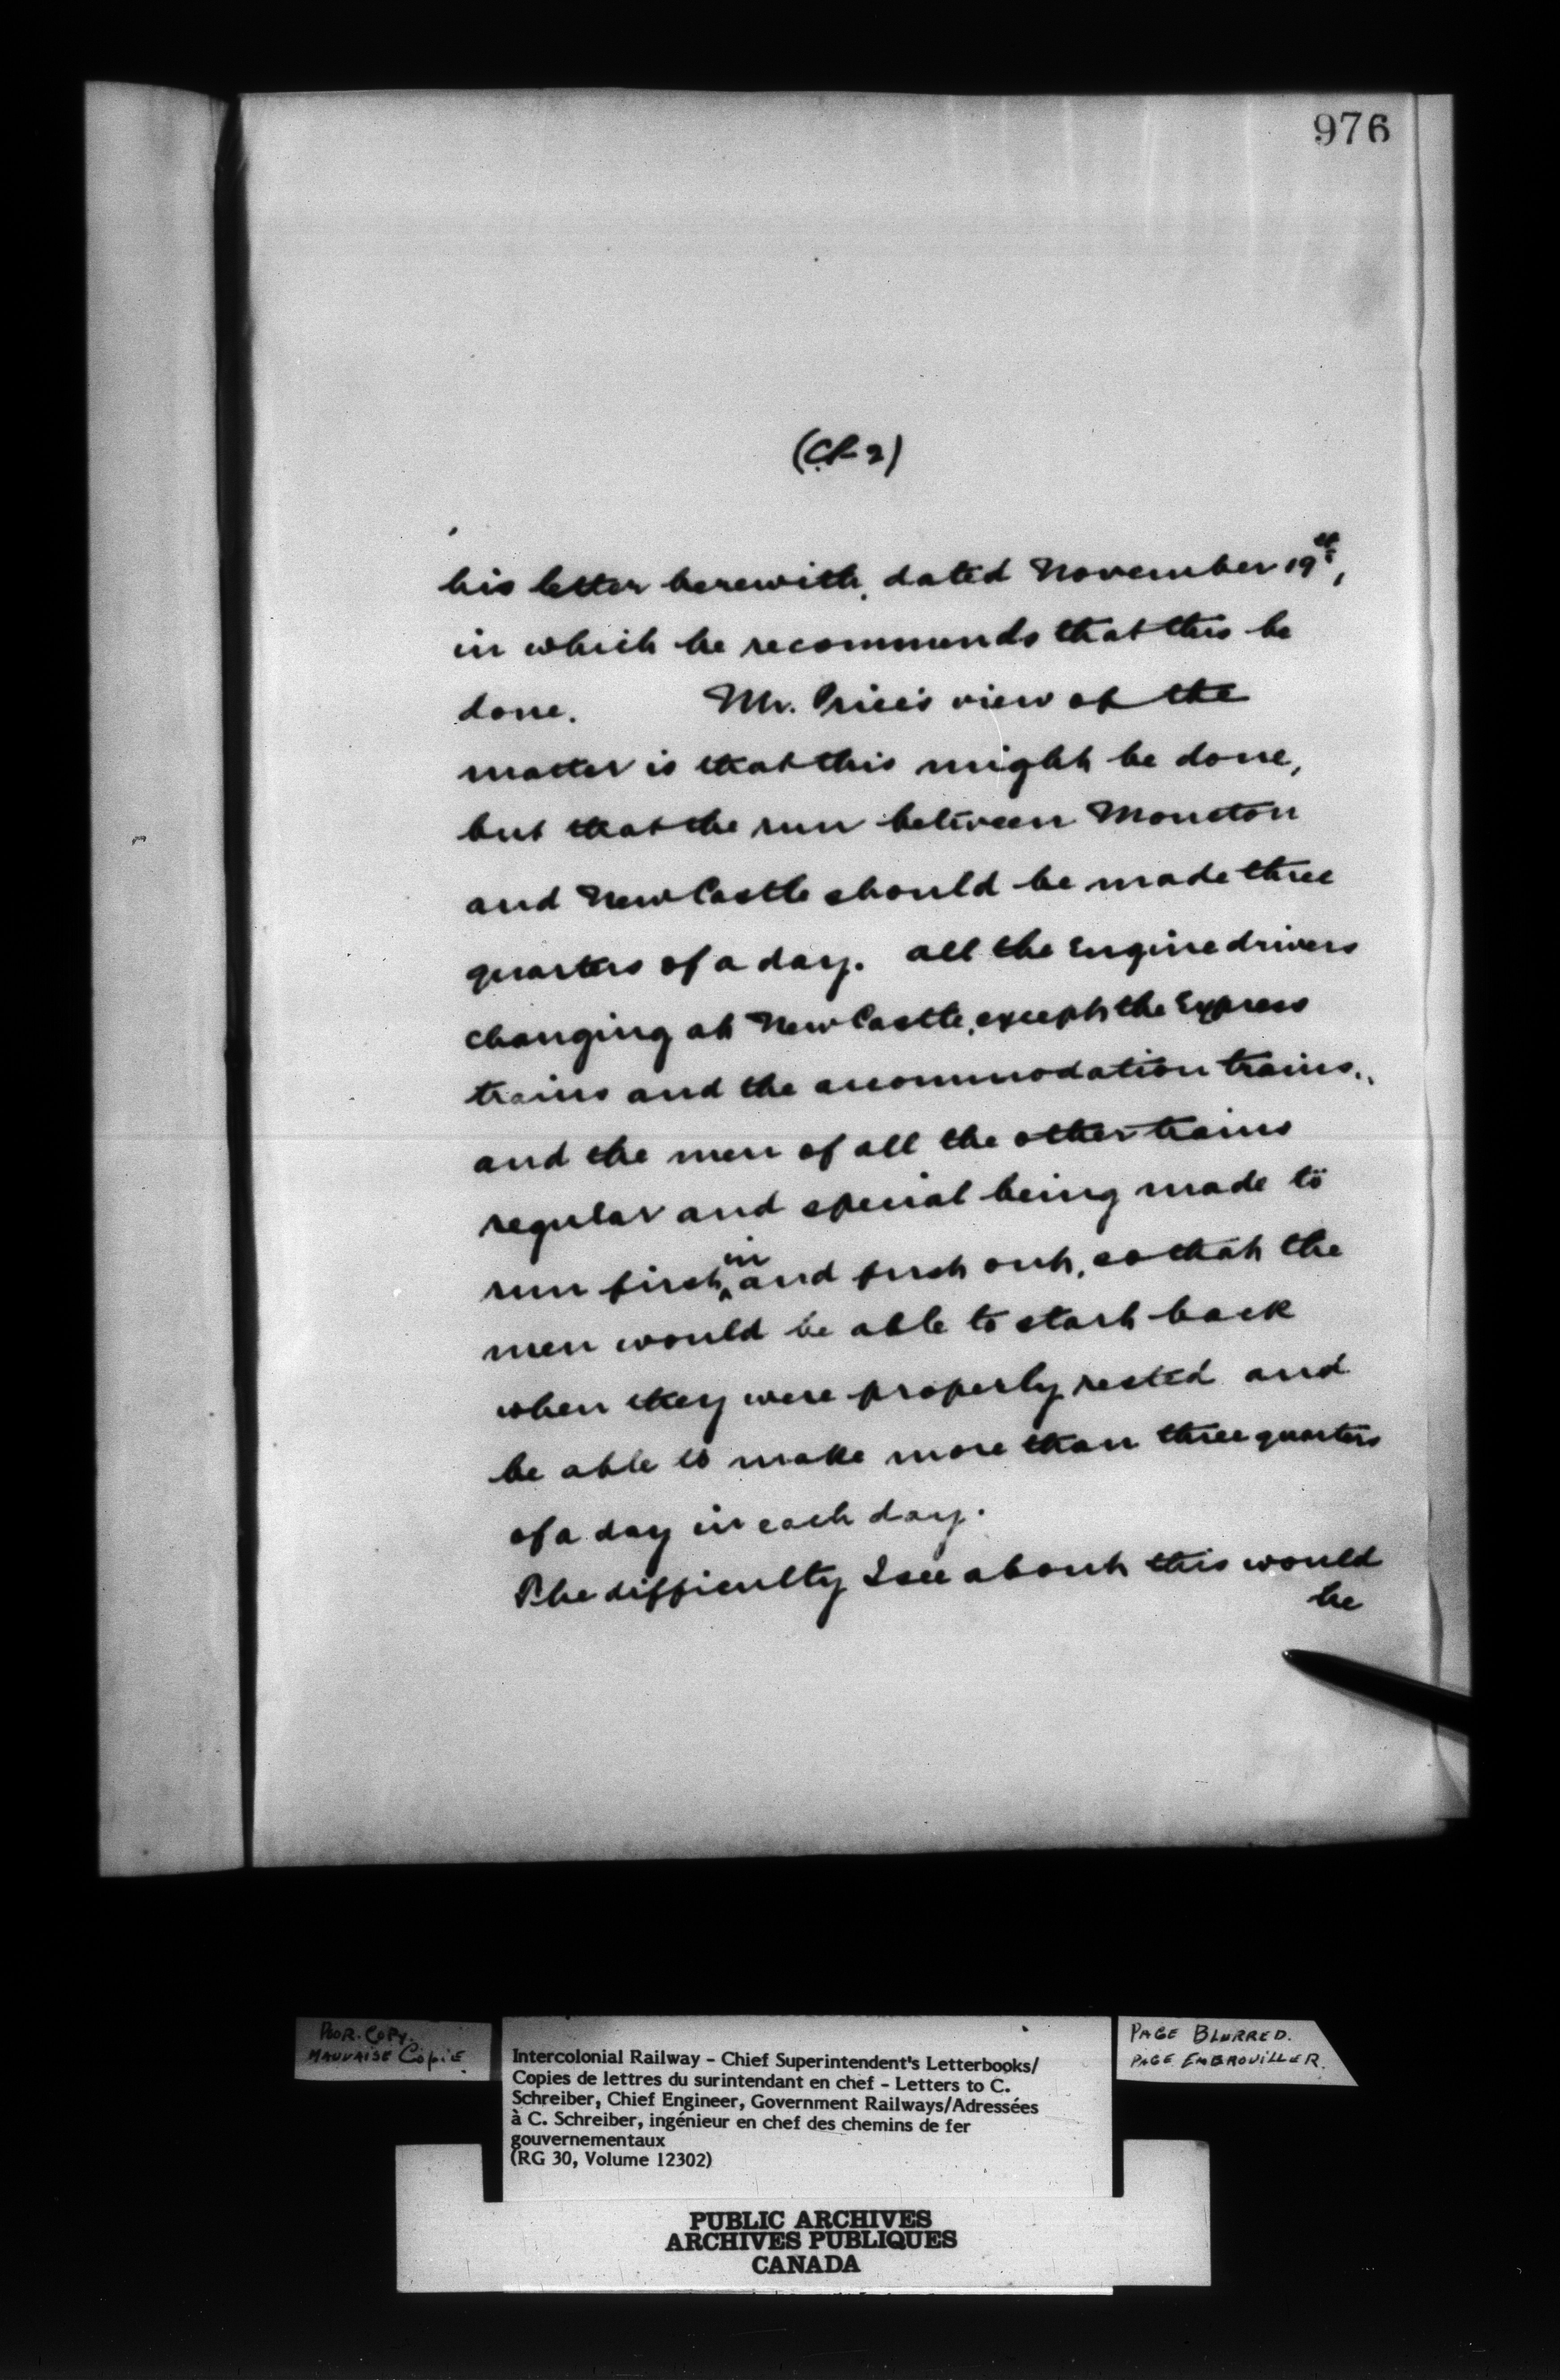 976
(CS 2)
his letter herewith, dated November 19th,
in which he recommends that this be
done. Mr. Price's view of the
matter is that this might be done,
but that the run between Moncton
and New Castle should be made three
quarters of a day. All the Engine drivers
changing at New Castle, except the Express
trains and the accommodation trains,
and the men of all the other trains
regular and special being made to
run first in and first out, so that the
men would be able to start back
when they were properly rested and
be able to make more than three quarters
of a day in each day.
The difficulty I see about this would
be
POOR COPY.
MAUVAISE COPIE
Intercolonial Railway – Chief Superintendent's Letterbooks/
Copies de lettres du surintendant en chef – Letters to C.
Schreiber, Chief Engineer, Government Railways/Adressées
à C. Schreiber, ingénieur en chef des chemins de fer
gouvernementaux
(RG 30, Volume 12302)
PAGE BLURRED.
PAGE EMBROUILLER.
PUBLIC ARCHIVES
ARCHIVES PUBLIQUES
CANADA